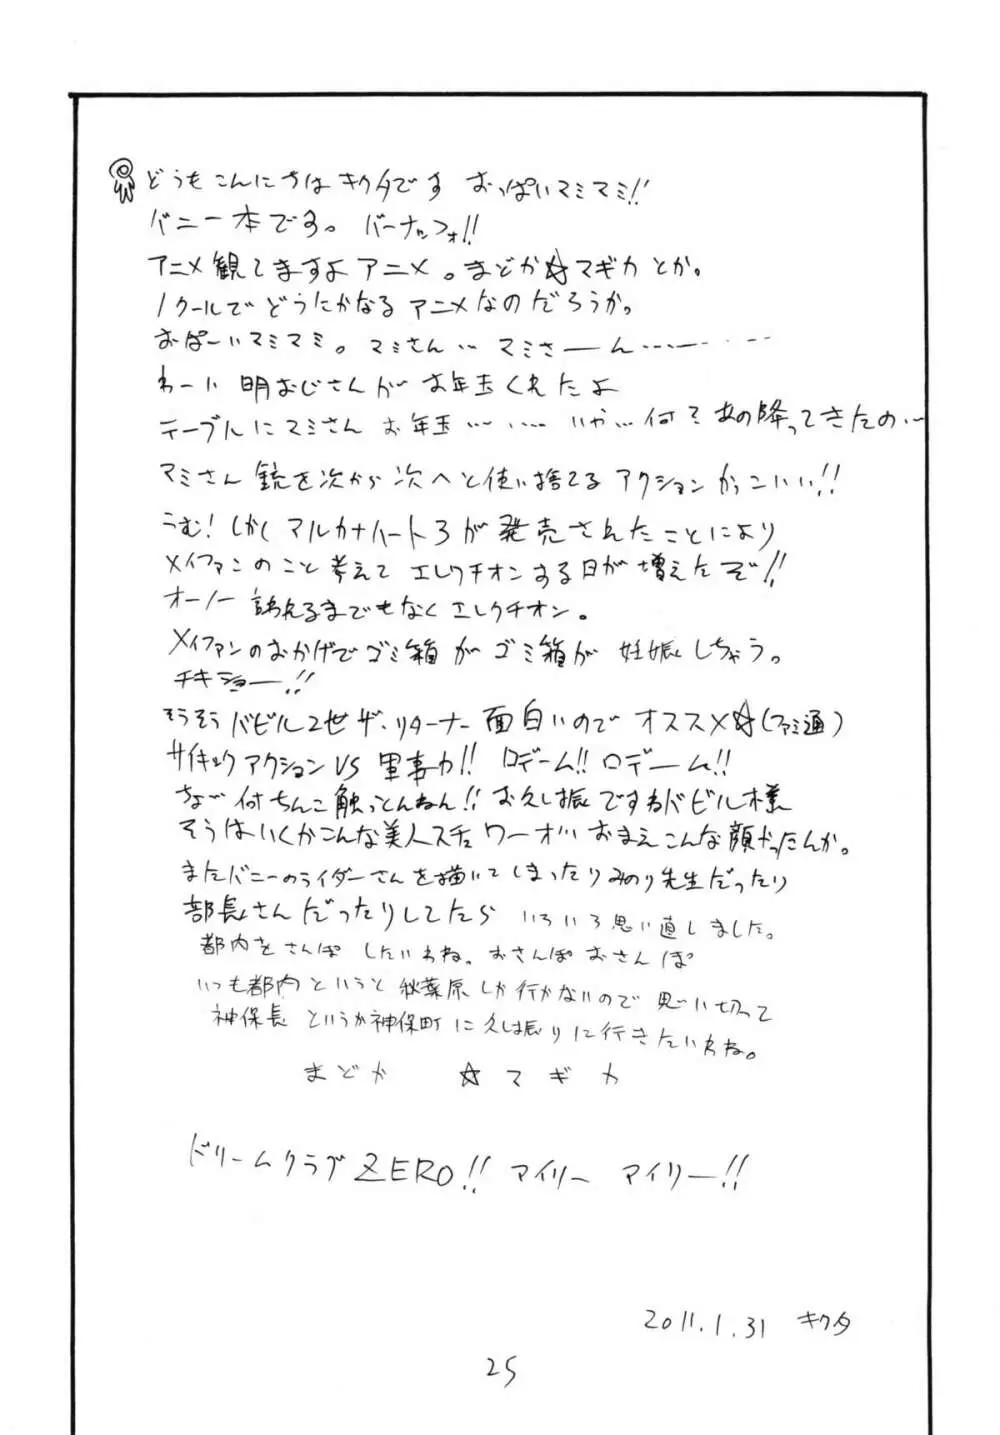 どうもこんにちはキクタです おっぱいマミマミ!!
バニー本です。 バーナッフォ!!
アニメ観てますよアニメ。まどか☆マギカとか。
1クールでどうにかなるアニメなのだろうか。
おぱーいマミマミ。マミさん… マミさーん…ー……
わーい 明おじさんが お年玉くれたよ
テーブルにマミさん お年玉………… いや…何て あの降ってきたの…
マミさん 銃を次から次へと使い捨てる アクションかっこいい!!
うむ! しかしマルカナハート3が発売されたことにより
メイファンのこと考えて エレクチオンする日が増えたぞ!!
オーノー 訴えるまでもなくエレクチオン。
メイファンのおかげでゴミ箱が ゴミ箱が 妊娠しちゃう。
チキショー!!
そうそうバビル2世ザ・リターナー 面白いので オススメ☆(ファミ通)
サイキックアクションVS 軍事力!! ロデーム!! ロデーム!!
ちょ 何ちんこ触っとんねん!! お久し振りですねバビル様
そうはいくかこんな美人スチ ワーオ!!! おまえこんな顔やったんか。
またバニーのライダーさんを描いてしまったりみのり先生だったり
部長さんだったりしてたら いろいろ思い直しました。
都内をさんぽ したいわね。おさんぽおさんぽ
いつも都内というと秋葉原しか行かないので 思い切って
神保長 というか神保町に久し振りに行きたいわね。
まどか ☆マギカ
ドリームクラブZERO!! アイリー アイリー!!
2011.1.31 キクタ
25